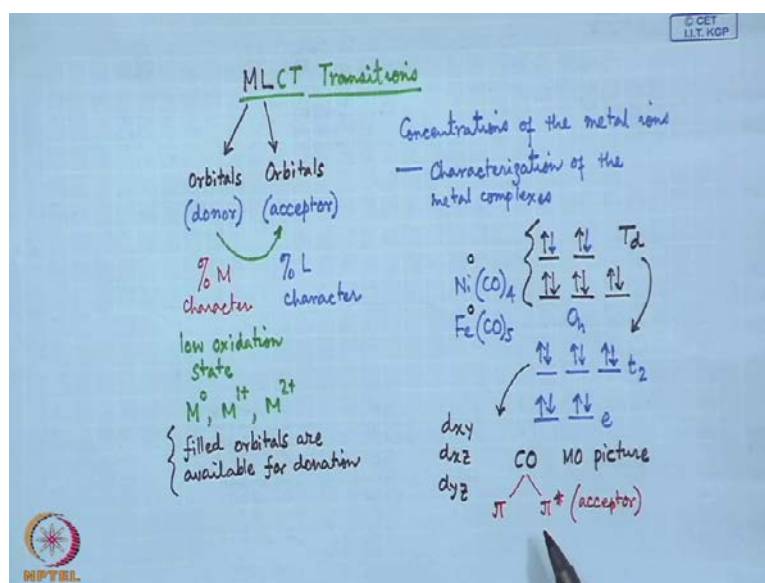 © CET
I.I.T. KGP
MLCT Transitions
Orbitals Orbitals
(donor) (acceptor)
% M % L
character character
low oxidation
state
M⁰, M¹⁺, M²⁺
filled orbitals are
available for donation
Concentrations of the metal ions
— Characterization of the
metal complexes
⁰
Ni(CO)₄
⁰
Fe(CO)₅
↑↓ ↑↓ Td
↑↓ ↑↓ ↑↓
Oh
↑↓ ↑↓ ↑↓ t₂
↑↓ ↑↓ e
dxy
dxz
dyz
CO MO picture
π π* (acceptor)
NPTEL